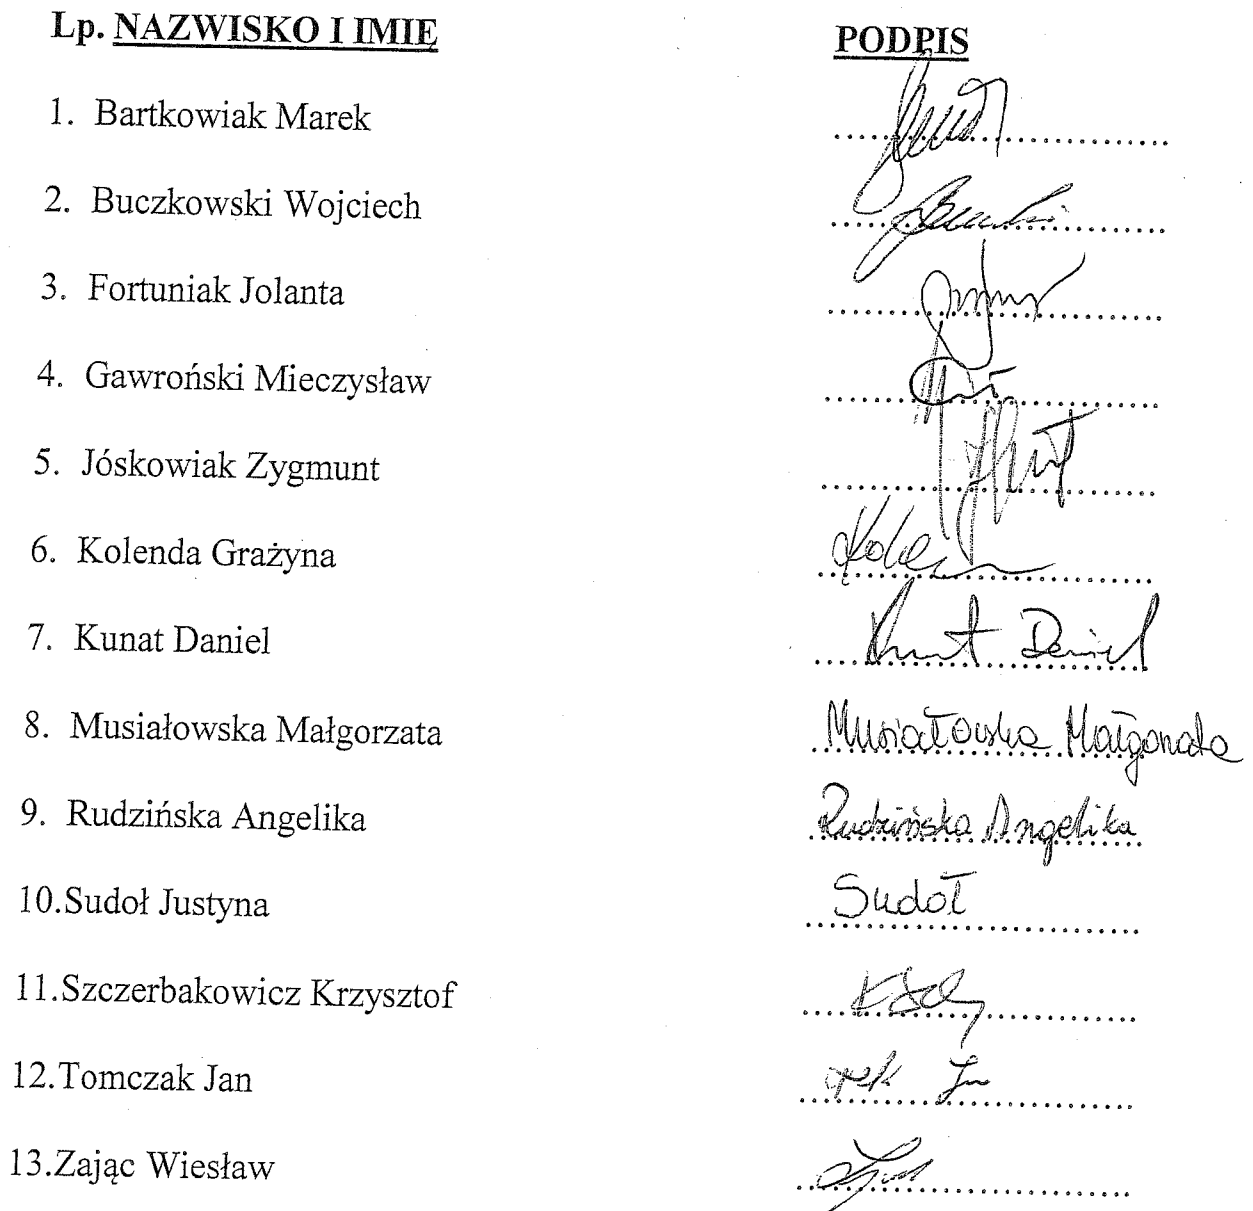 Lp. NAZWISKO I IMIĘ PODPIS
1. Bartkowiak Marek
2. Buczkowski Wojciech
3. Fortuniak Jolanta
4. Gawroński Mieczysław
5. Jóskowiak Zygmunt
6. Kolenda Grażyna
7. Kunat Daniel Kunat Daniel
8. Musiałowska Małgorzata Musiałowska Małgorzata
9. Rudzińska Angelika Rudzińska Angelika
10.Sudoł Justyna Sudoł
11.Szczerbakowicz Krzysztof
12.Tomczak Jan
13.Zając Wiesław